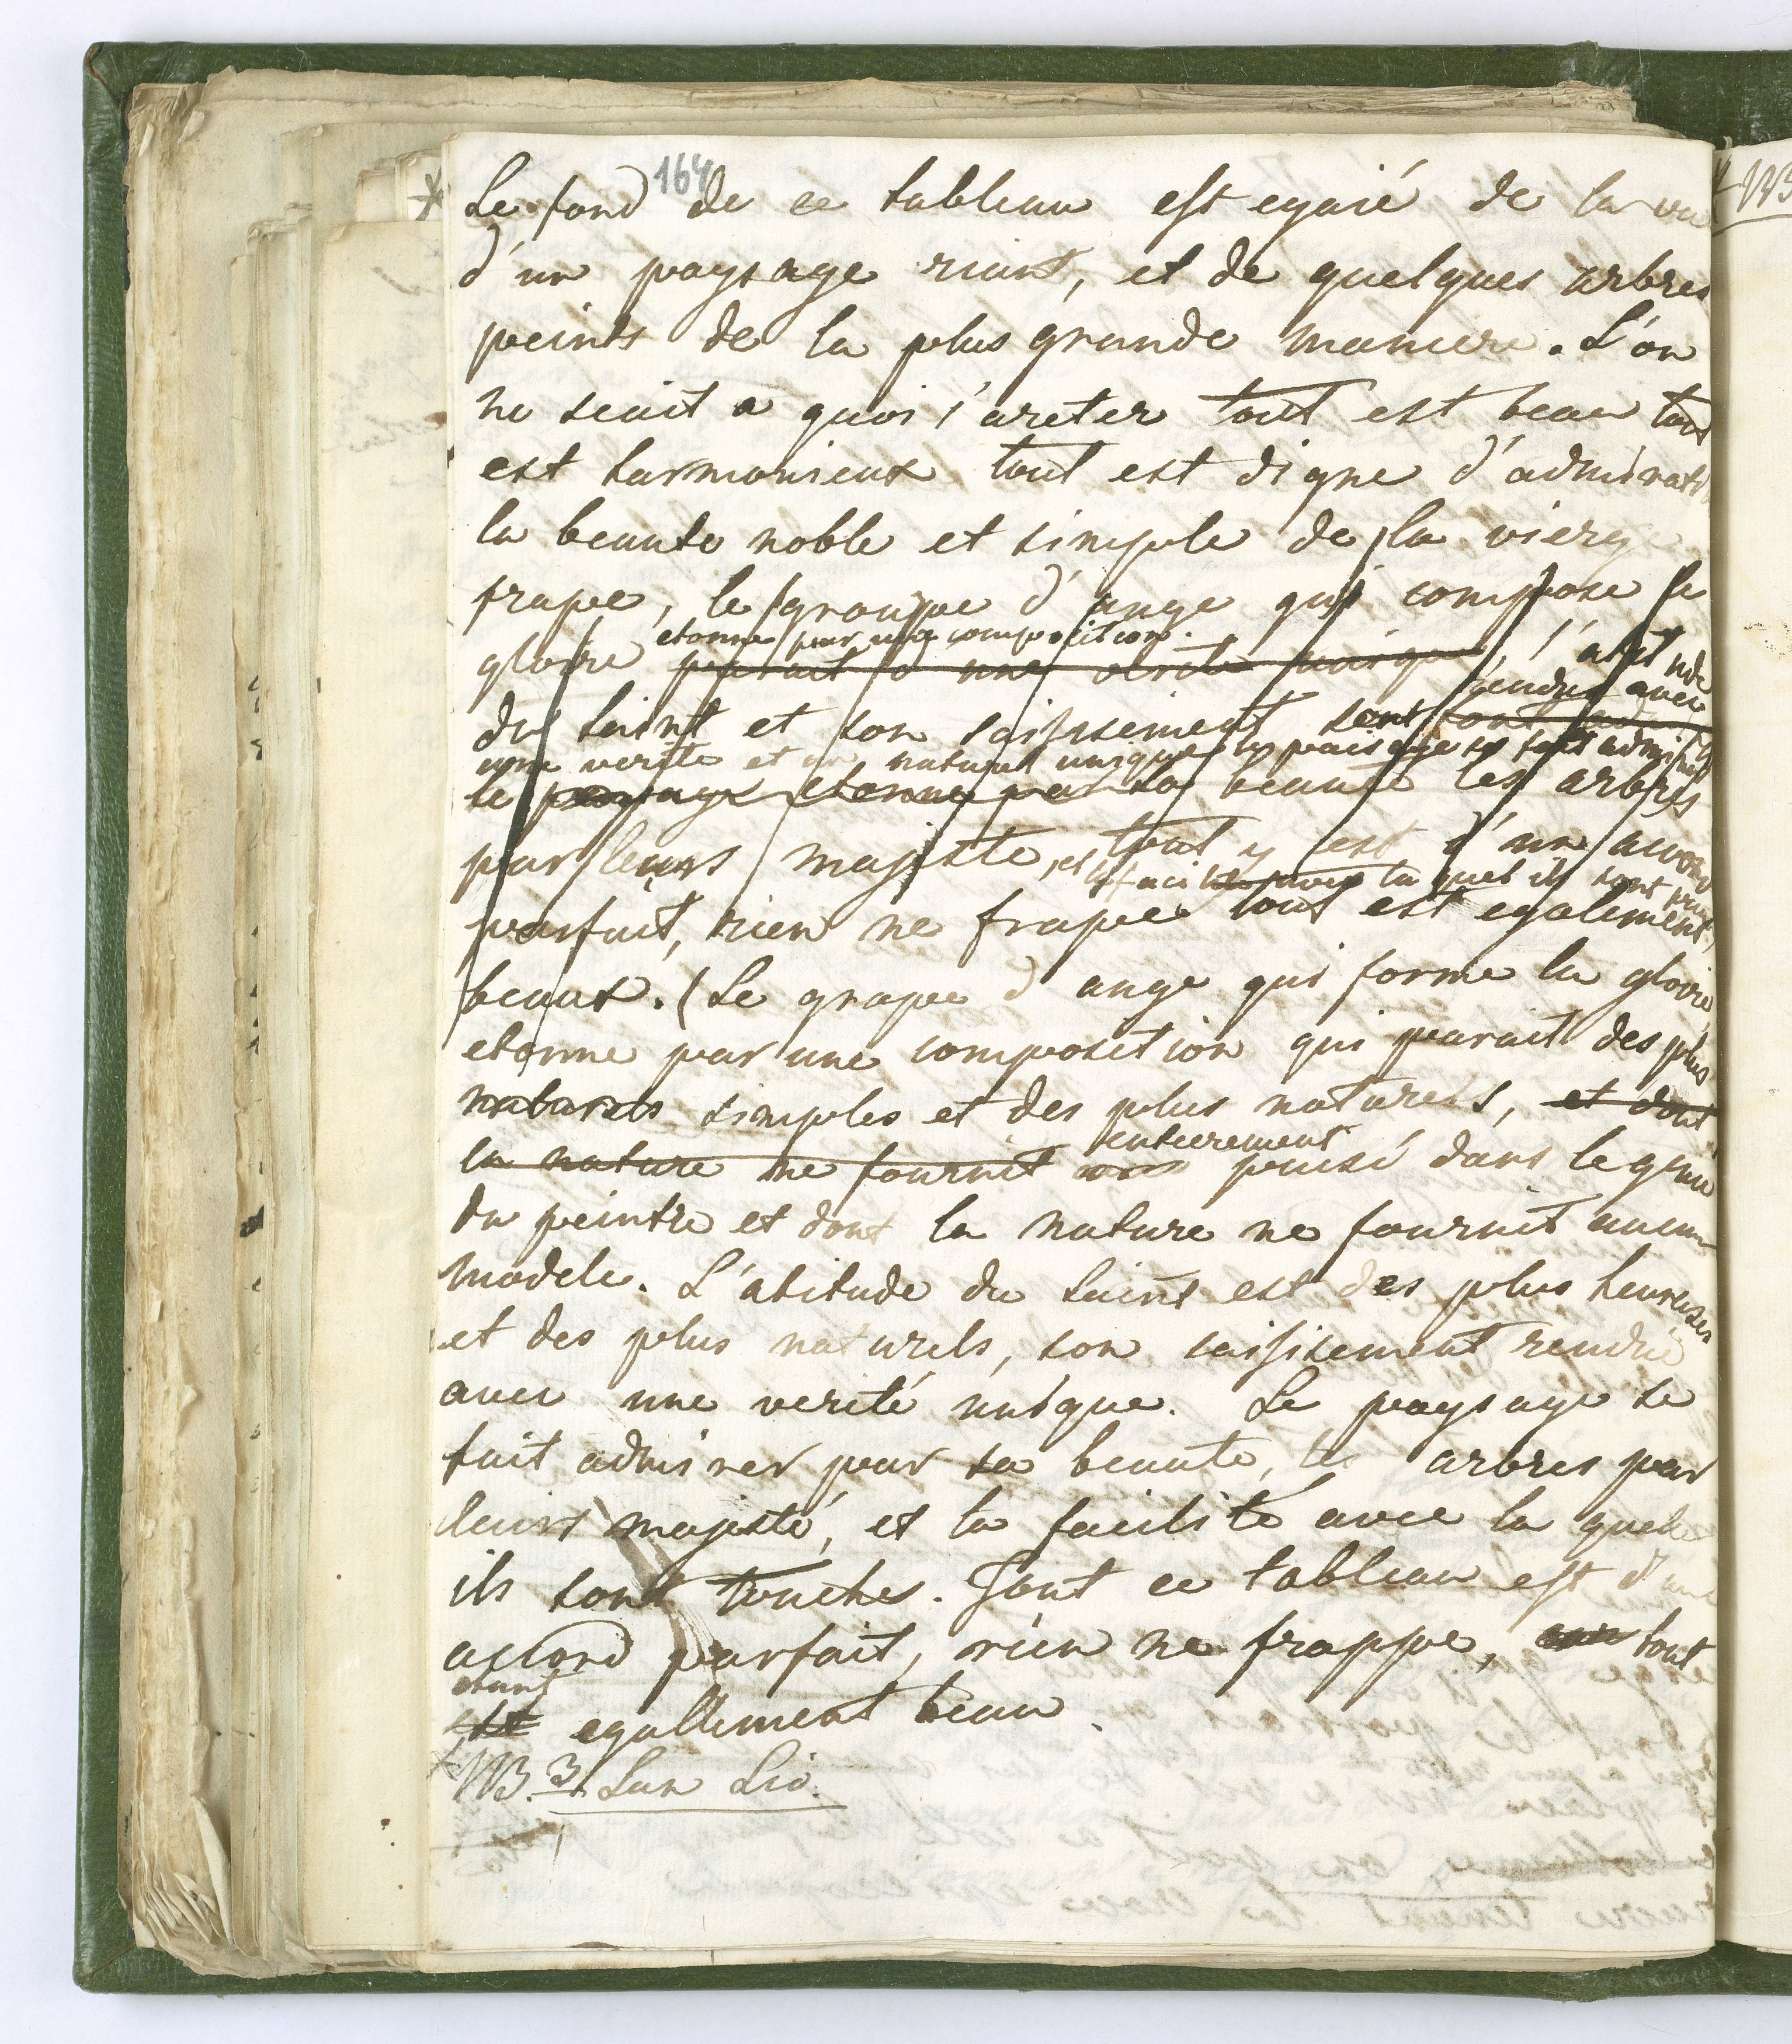 164
Le fond de ce tableau est egaié de la vue
d'un paysage riant, et de quelques arbres
peints de la plus grande maniere. L'on
ne scait a quoi s'areter tout est beau tout
est harmonieux tout est digne d'admirati
la beaute noble et simple de la vierge
frape, le groupe d'ange qui compose la
etonne par une composition.
gloire parait d une verité unique, l'atitude
rendus avec
du Saint et son saisissement sont
une verite et un naturel unique le paisage se fait admirer
le paysage etonne par sa beaute les arbres
par leurs majeste, tout y est d'un accord
et la facilité avec la quel ils sont
parfait, rien ne frape tout est egalement
beaux. (Le grape d'ange qui forme la gloire
etonne par une composition qui parait des plus
naturels simples et des plus naturels, et dont
entierement
la nature ne fournit puisé dans le genie
du peintre et dont la nature ne fournit aucun
modele. L'atitude du Saint est des plus heureuses
et des plus naturels, son saisisement rendue
avec une verité unique. Le paysage se
fait admirer par sa beaute, les arbres par
leurs majesté, et la facilité avec la quele
ils sont touches. Tout ce tableau est d'une
accord parfait, rien ne frappe, tout
etant
est egallement beau.
NB. 3. San Lio.
NB